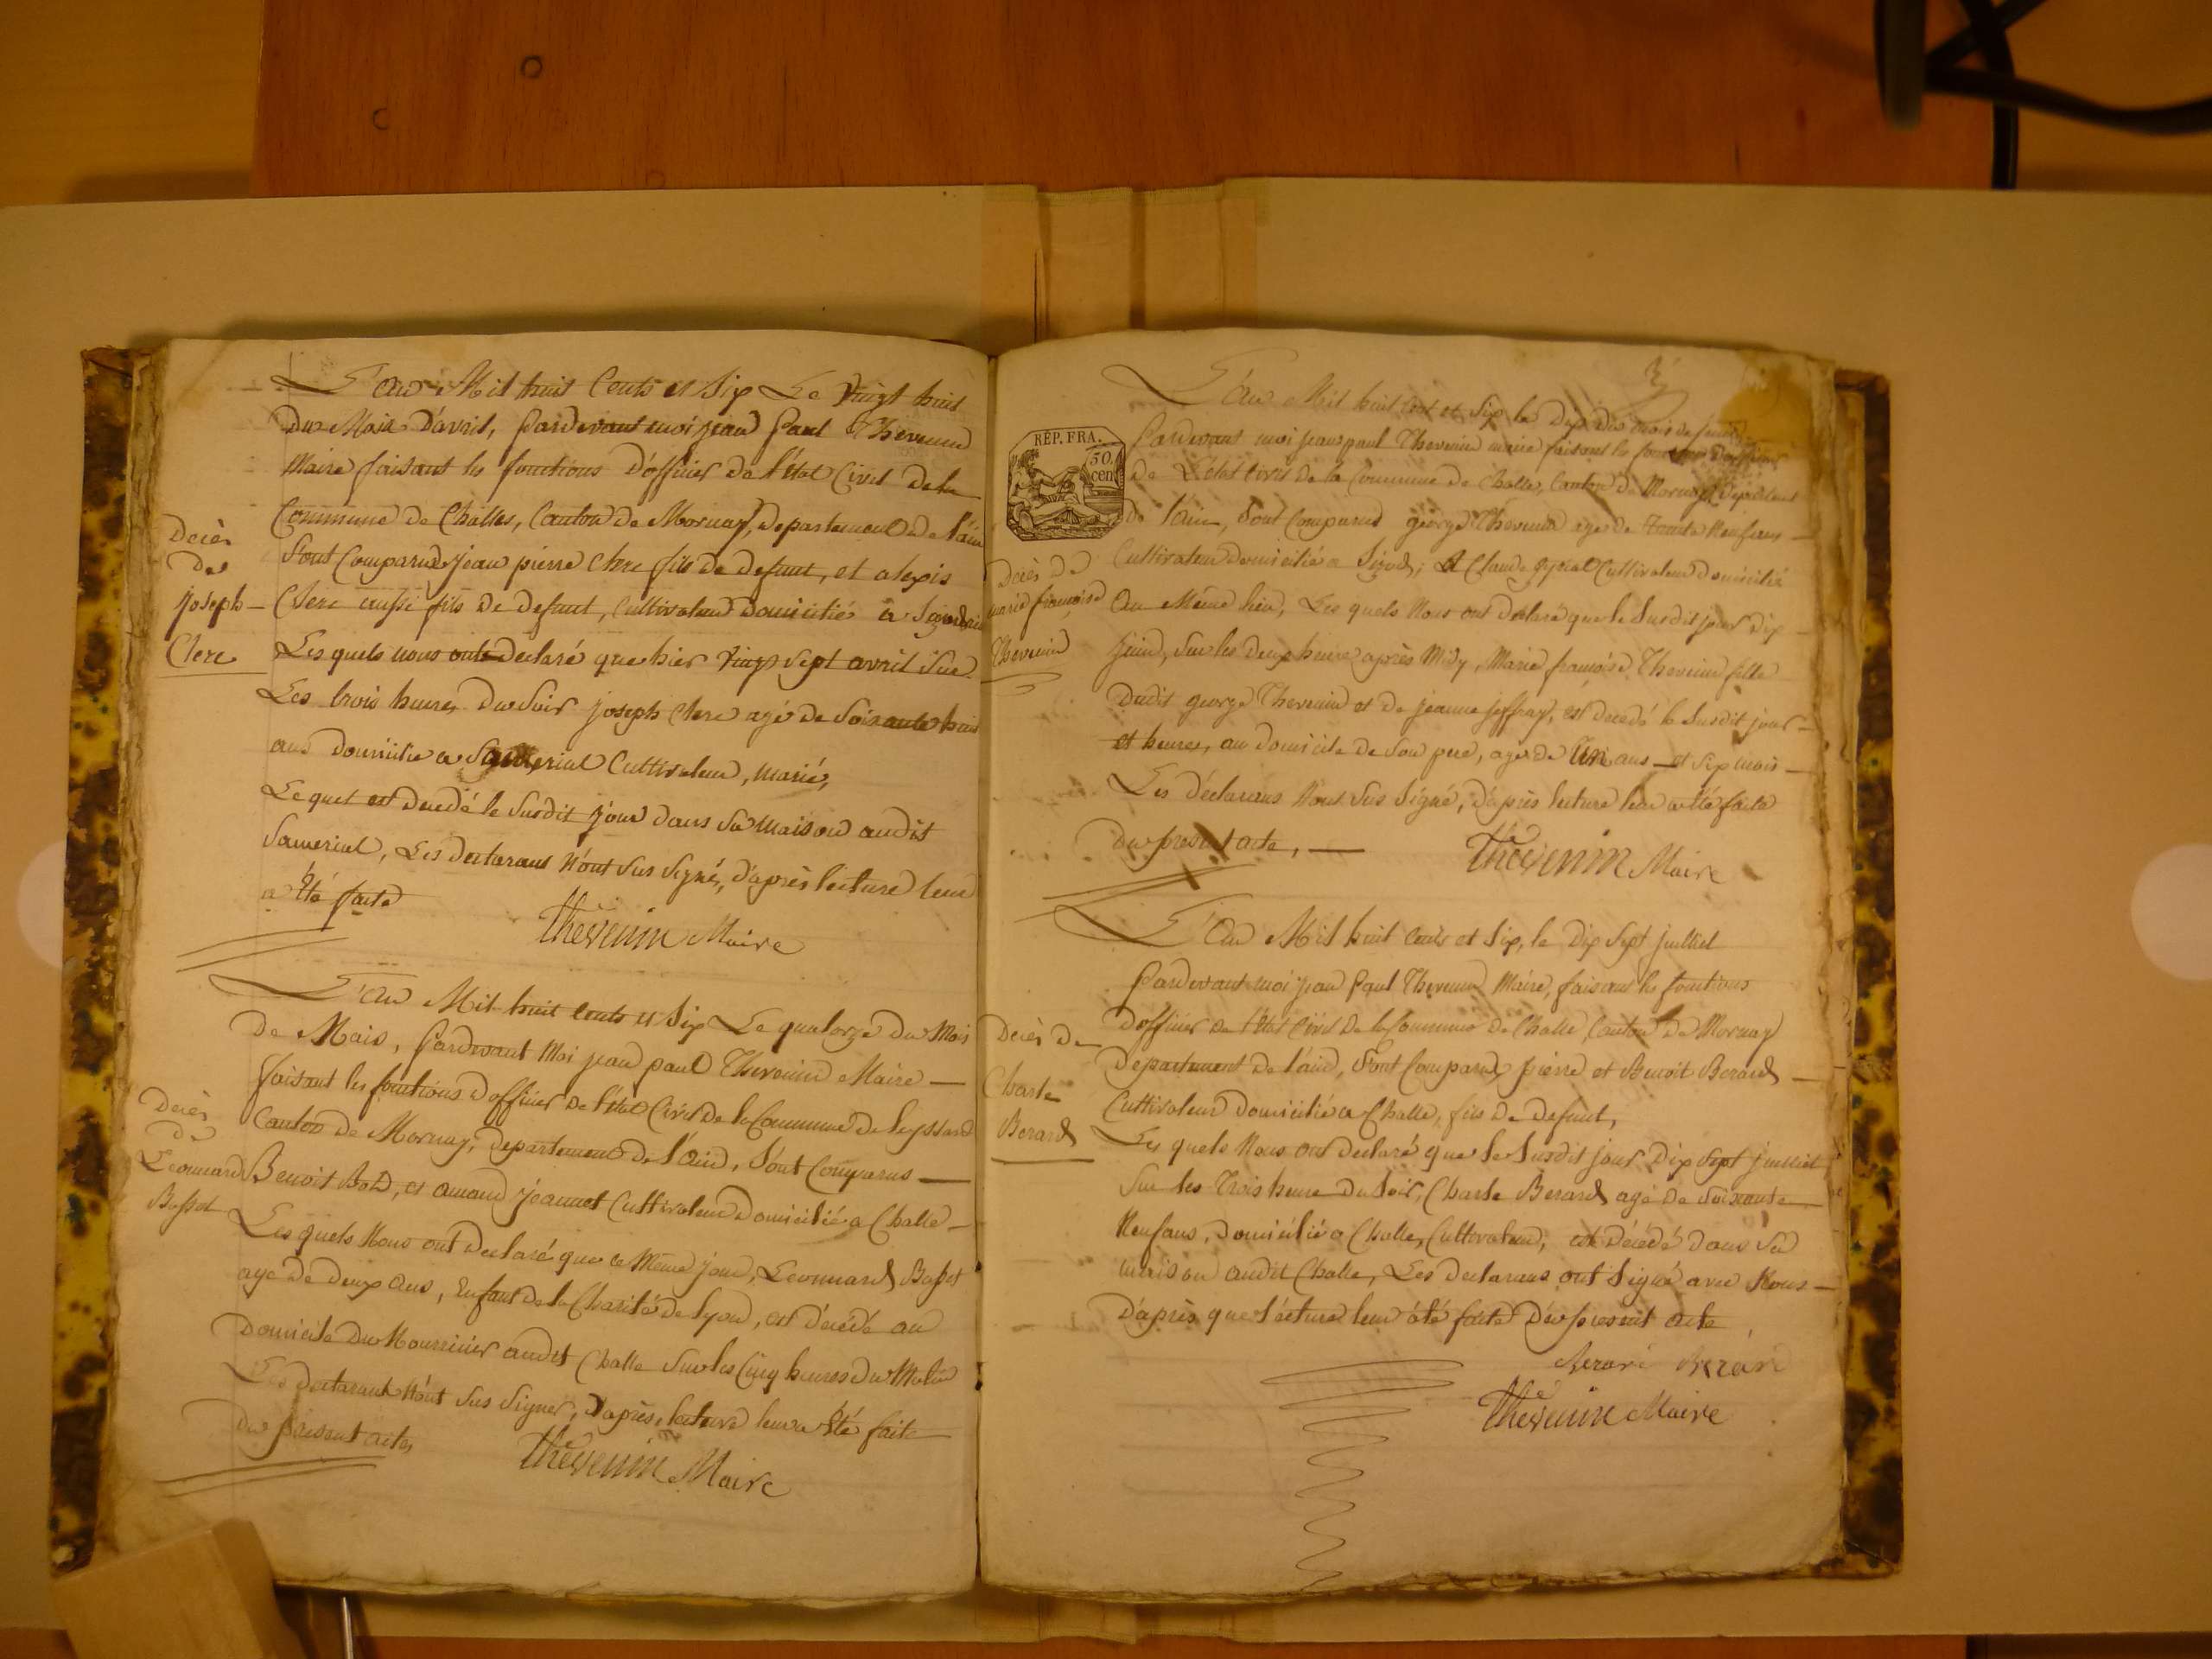 L'an Mil huit Cents et Six Le Vingt huit
Du Mois D'avril, Pardevant moi jean Paul Thevenin
Maire faisant les fonctions D'officier de l'état Civil de la
Commune de Challes, Canton de Mornay, departement de l'ain
Sont Comparus jean pierre Clerc fils de defunt, et alexis
Clerc aussi fils de defunt, Cultivateur domicilié a
Les quels nous ont declaré que hier vingt sept avril sur
Les trois heures du Soir joseph Clerc agé de Soixante huit
ans domicilié a Cultivateur, marié,
Le quel est decedé le Susdit jour dans sa Maison audit
Les declarans n'ont sus Signés, d'après lecture leur
a Eté faite
Thevenin Maire
Decès
De
joseph
Clerc
L'an Mil huit Cents et Six Le quatorze du Mois
de Mais, Pardevant Moi jean paul Thevenin Maire
faisant les fonctions d'officier de l'état Civil de la Commune de leyssard
Canton de Mornay, departement de l'ain, Sont Comparus
Benoit et amand jeannet Cultivateur Domicilié a Challe
Les quels Nous ont declaré que ce Même jour, Leonnard Bosset
agé de deux ans, Enfant de la Charité de lyon, est décédé au
Domicile du Nourricier audit Challe Sur les Cinq heures du Matin
Les declarant N'ont sus Signer, D'après lecture leur a Eté faite
Du présent acte,
Thevenin Maire
Decès
De
Leonnard
Bosset
3
L'an Mil huit Cent et Six le Dix du mois de juin
Pardevant moi jean paul Thevenin maire faisant les fonctions d'officier
de L'état Civil de la Commune de Challe, Canton de Mornay, departement
de l'ain, Sont Comparus george Thevenin agé de Trente Neuf ans
Cultivateur domicilié a et Claude Cultivateur domicilié
au Même lieu, Les quels Nous ont declaré que le Susdit jour dix
juin, Sur les deux heures après Midy, Marie françoise Thevenin fille
Dudit george Thevenin et de jeanne jeffray, est decedé le Susdit jour
et heures, au domicile de Son pere, agée de Un ans et Six mois
Les déclarans N'ont Sus Signé, D'après lecture leur a été faite
du present acte,
Thevenin Maire
RÉP. FRA.
50
cen
Decès de
marie françoise
Thevenin
L'an Mil huit Cents et Six, le Dix Sept juilliet
Pardevant moi jean Paul Thevenin Maire, faisant les fonctions
D'officier de l'état Civil de la Commune de Challe, Canton de Mornay
Département de l'ain, Sont Comparus pierre et Benoit Berard
Cultivateur domicilié a Challe, fils de defunt,
Les quels Nous ont declaré que le Susdit jour Dix Sept juilliet
Sur les Trois heure du Soir, Charle Berard agé de Soixante
Neuf ans, Domicilié a Challe, Cultivateur, est décédé dans Sa
maison audit Challe, Les declarans ont Signé avec Nous
D'après que lecture leur été faite Du present acte
Berard Berard
Thevenin Maire
Decès de
Charle
Berard